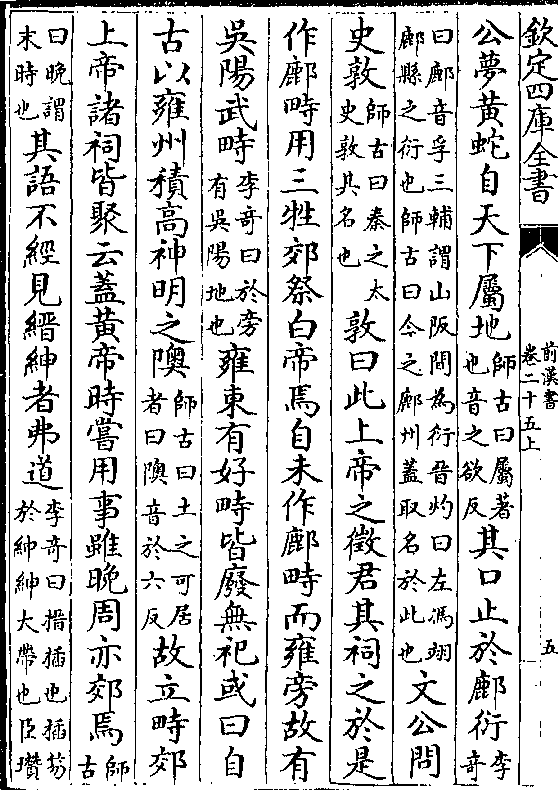 欽定四庫全書
前漢書
卷二十五上
五
公夢黃蛇自天下屬地師古曰屬著也音之欲反其口止於鄜衍李奇
曰鄜音孚三輔謂山阪間為衍晉灼曰左馮翊鄜縣之衍也師古曰今之鄜州蓋取名於此也文公問
史敦師古曰秦之太史敦其名也敦曰此上帝之徵君其祠之於是
作鄜畤用三牲郊祭白帝焉自未作鄜畤而雍旁故有
吳陽武畤李奇曰於旁有吳陽地也雍東有好畤皆廢無祀或曰自
古以雍州積高神明之隩師古曰土之可居者曰隩音於六反故立畤郊
上帝諸祠皆聚云蓋黃帝時嘗用事雖晚周亦郊焉師古
曰晚謂末時也其語不經見縉紳者弗道李奇曰搢插也插笏於紳紳大帶也臣瓚